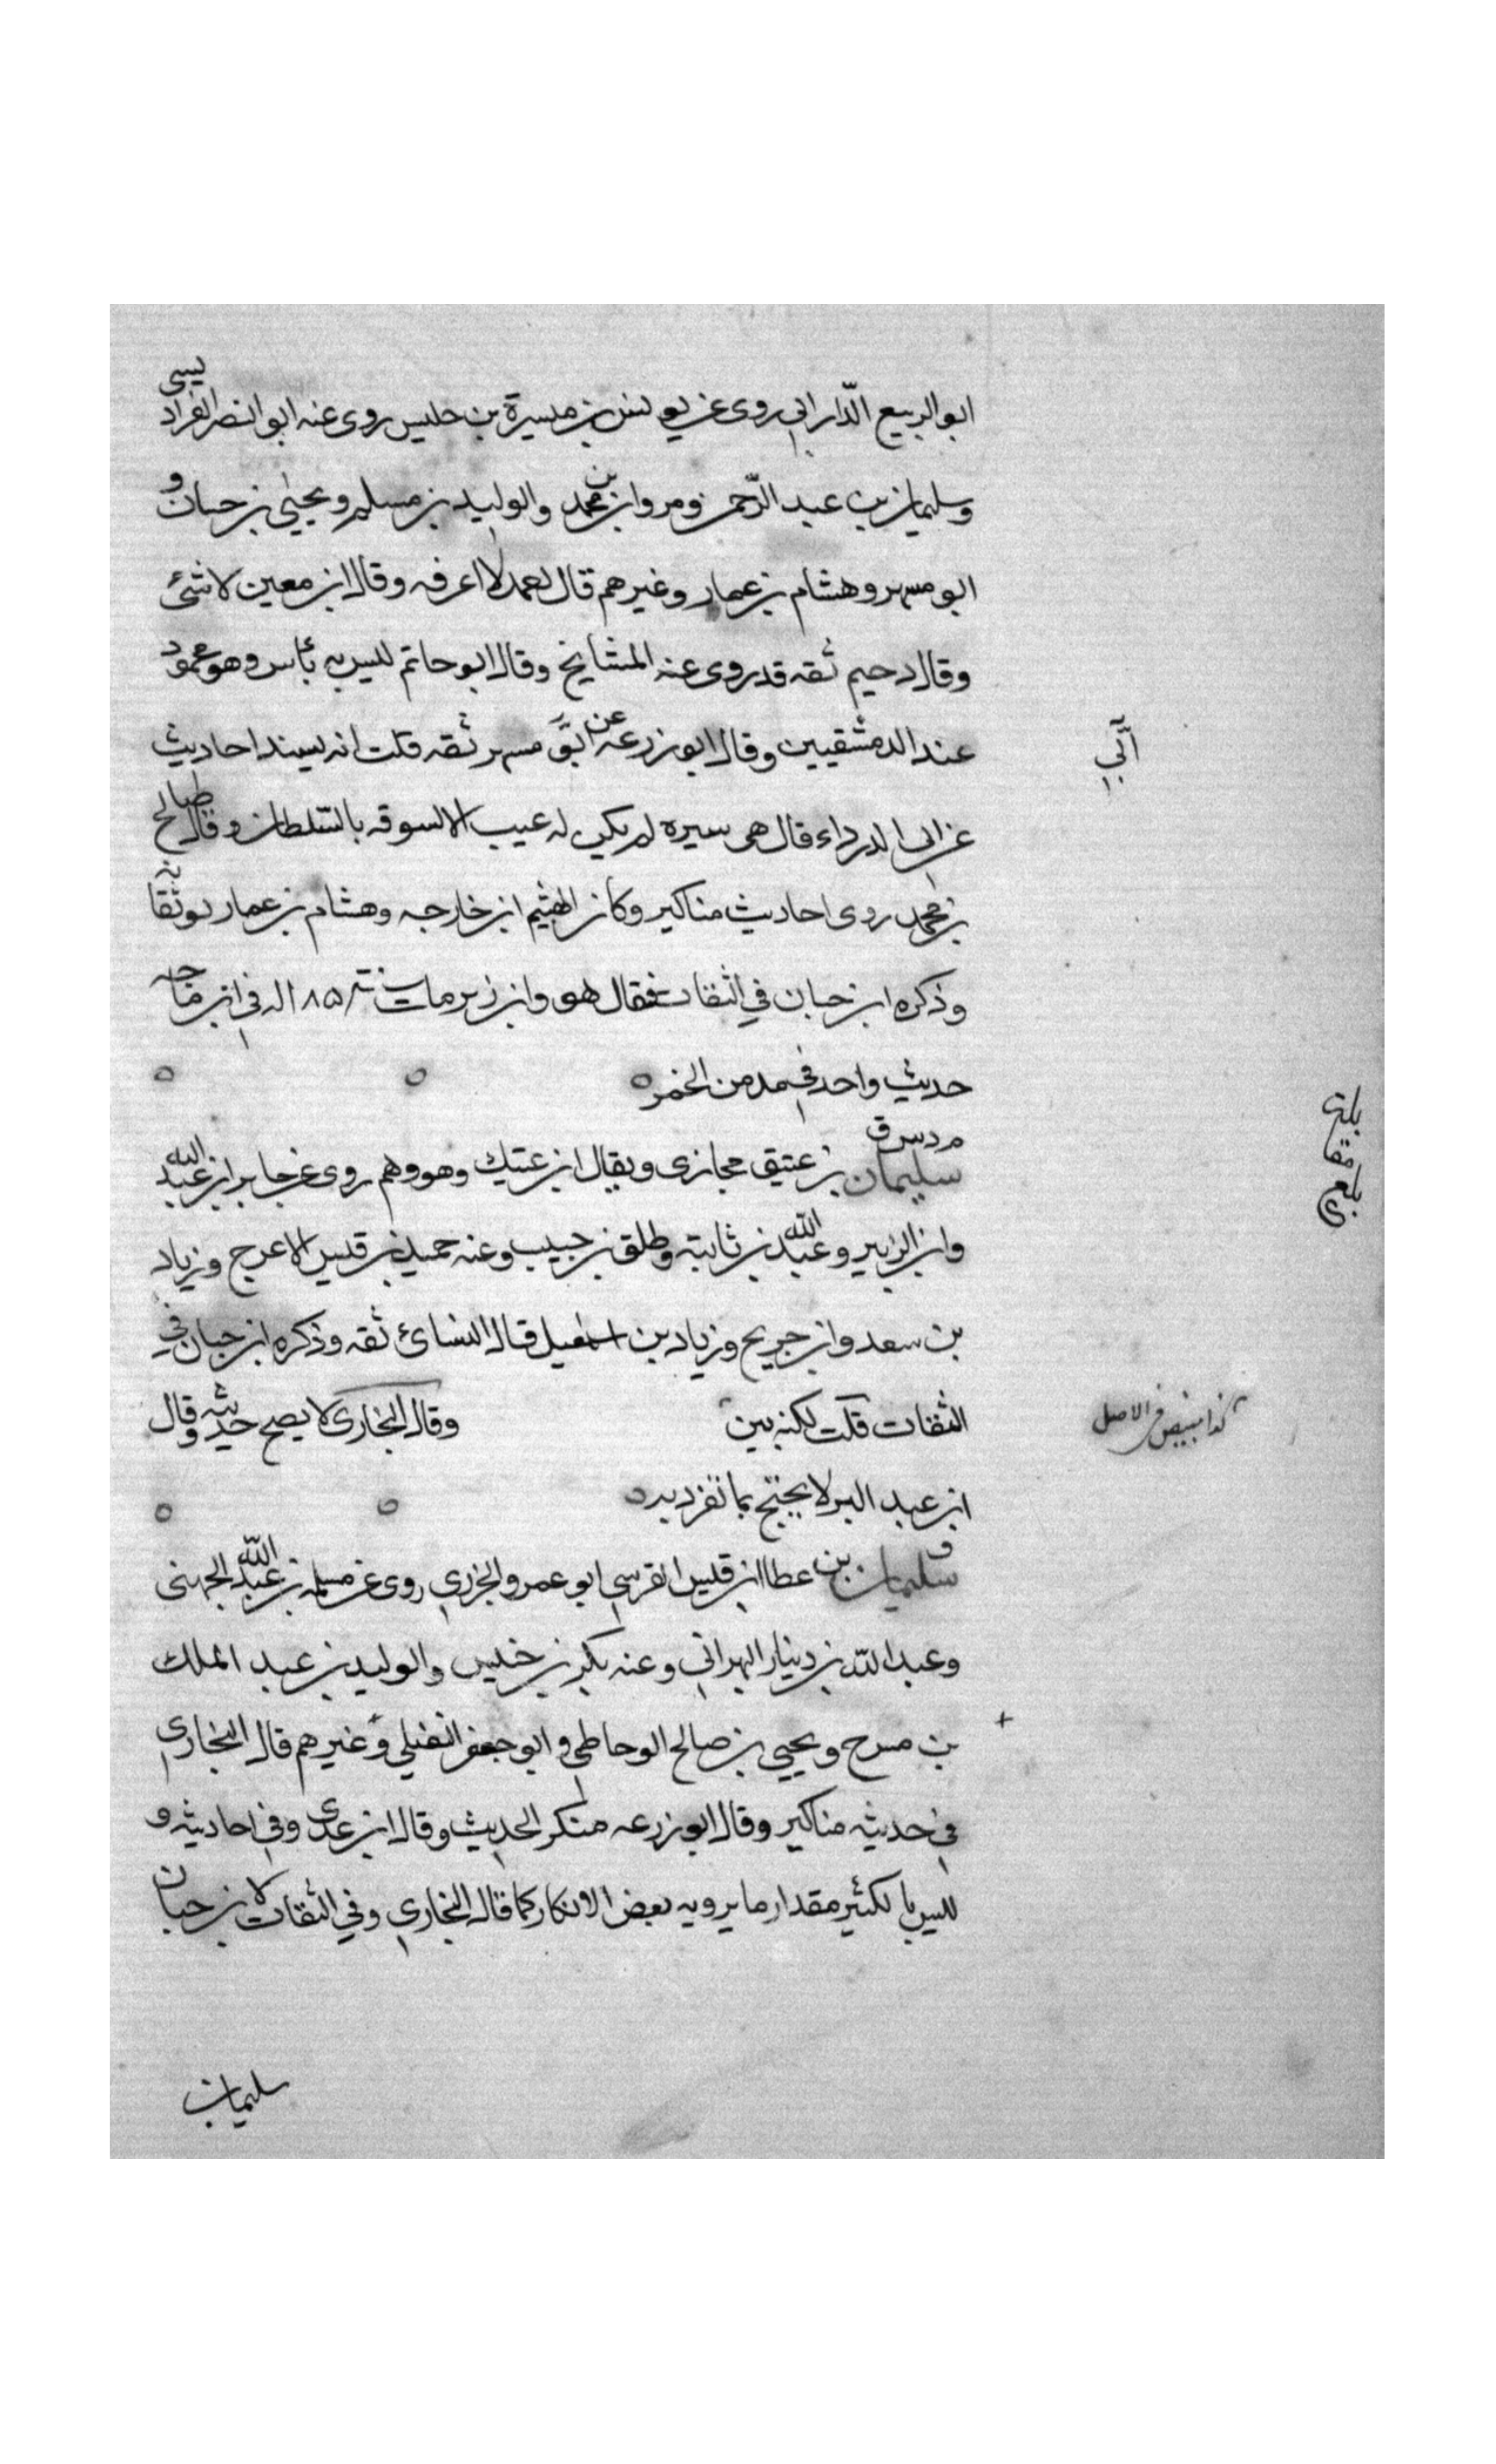 ابو الربيع الدّاراني روى عن يونس بن ميسرة بن حليس روى عنه ابو النضر الفراديسي
وسليمان بن عبد الرّحمن ومروان بن محمد والوليد بن مسلم ويحيى بن حسان و
ابو مسهر وهشام بن عمار وغيرهم قال احمد لا اعرفه وقال ابن معين لا شئ
وقال دحيم ثقه قد روى عنه المشايخ وقال ابو حاتم ليس به بأس وهو محمود
عند الدمشقيين وقال ابو زرعه عن ابى مسهر ثقه قلت انه يسند احاديث
عن ابى الدرداء قال هى سيره لم يكن له عيب الا لسوقه بالسّلطان وقال صالح
بن محمد روى احاديث مناكير وكان الهثيم ابن خارجه وهشام بن عمار يوثقانه
وذكره ابن حبان في الثقات فقال هو وابن زبر مات سنة ١٨٥ له في ابن ماجه
حديث واحد في مدمن الخمر
م د س ق
سليمان بن عتيق حجازى ويقال ابن عتيك وهو وهم روى عن جابر ابن عبد الله
وابن الزبير وعبد الله بن ثابته وطلق بن حبيب وعنه حميد بن قيس الاعرج وزياد
بن سعد وابن جريج وزياد بن اسمعيل قال النسائ ثقه وذكره ابن حبان في
الثقات قلت لكنه بين وقال البخارى لا يصح حديثه وقال
ابن عبد البر لا يحتج بما تفرد به
ق
سليمان بن عطا ابن قيس القرسي ابو عمرو الجزري روى عن مسلمه بن عبد الله الجهنى
وعبد الله بن دينار البهراني وعنه بكر بن خنيس والوليد بن عبد الملك
بن مسرح ويحيي بن صالح الوحاظى و ابو جعفر النفيلي وغيرهم قال البخارى
في حديثه مناكير وقال ابو زرعه منكر الحديث وقال ابن عدى وفي احاديثه و
ليس بالكثير مقدار ما يرويه بعض الانكار كما قال البخاري وفي الثقات لابن حبان
سليمان
أبي
بلغ مقابلة
كذا مبيض في الاصل